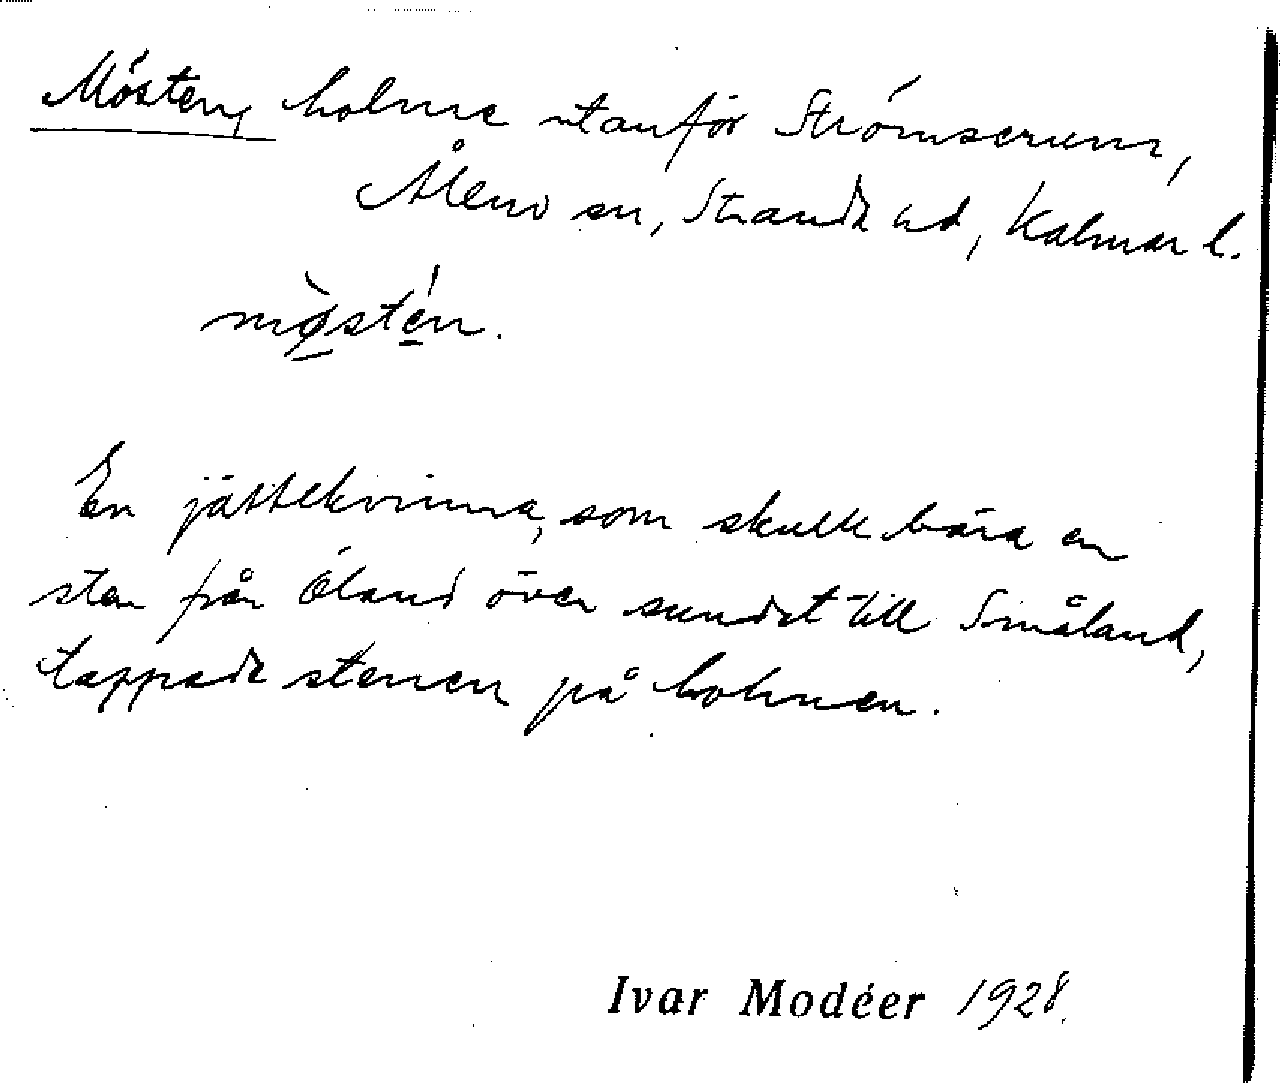 Mösten, holme utanför Strömserum,
Ålem sn, Stranda hd, Kalmar l.
mø̀stén.
En jättekvinna, som skulle bära en
sten från Öland över sundet till Småland,
tappade stenen på holmen.
Ivar Modéer 1928.